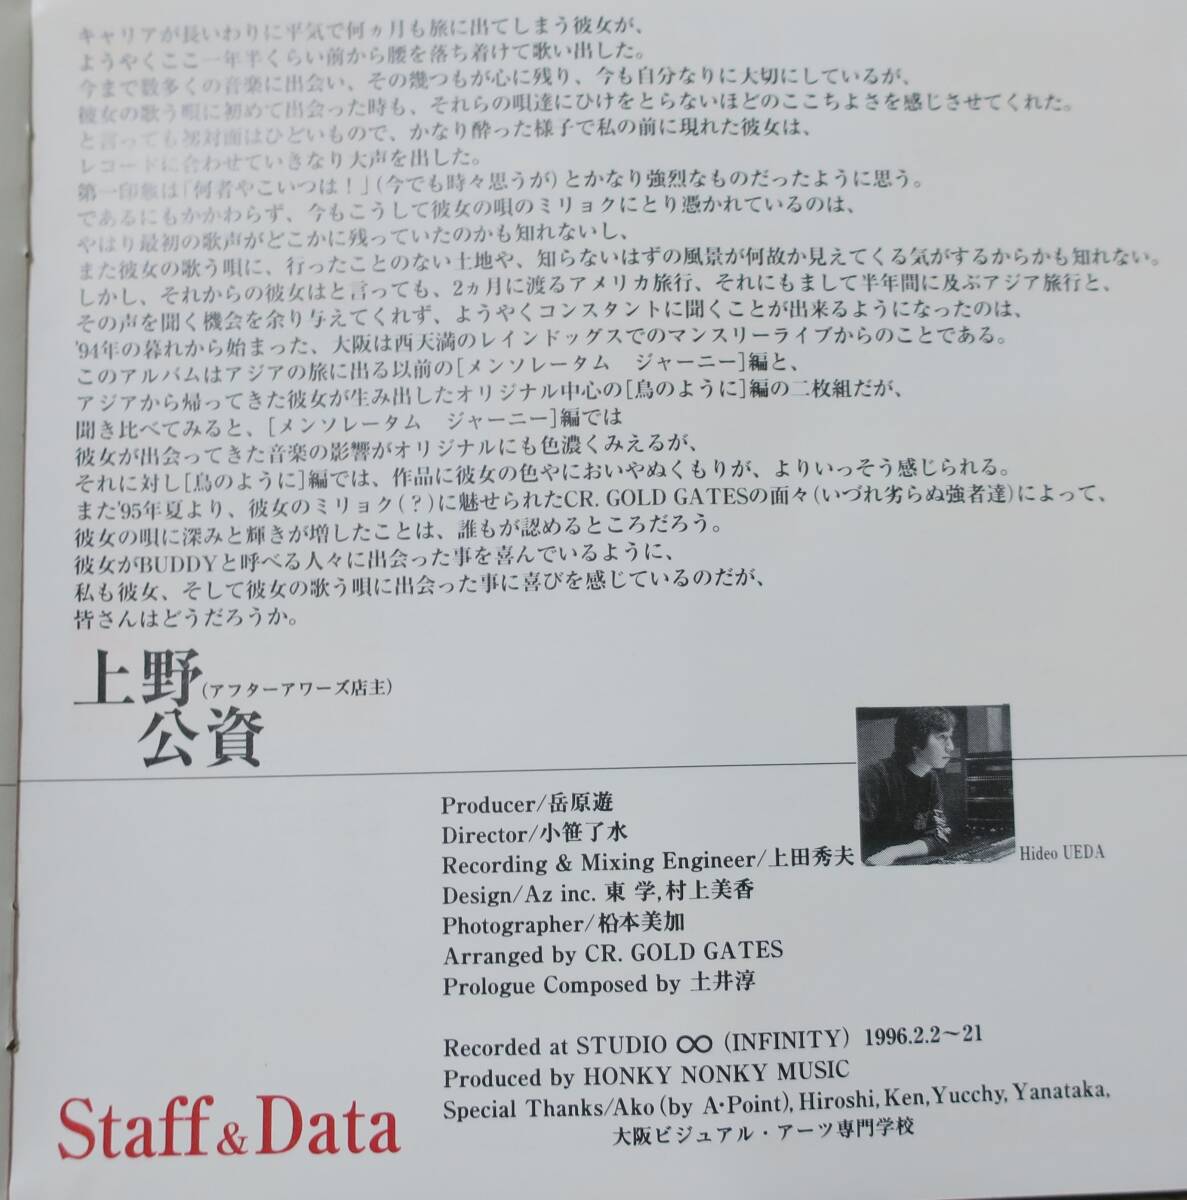 キャリアが長いわりに平気で何ヵ月も旅に出てしまう彼女が、
ようやくここ一年半くらい前から腰を落ち着けて歌い出した。
今まで数多くの音楽に出会い、その幾つもが心に残り、今も自分なりに大切にしているが、
彼女の歌う唄に初めて出会った時も、それらの唄達にひけをとらないほどのここちよさを感じさせてくれた。
と言っても初対面はひどいもので、かなり酔った様子で私の前に現れた彼女は、
レコードに合わせていきなり大声を出した。
第一印象は「何者やこいつは!」(今でも時々思うが)とかなり強烈なものだったように思う。
であるにもかかわらず、今もこうして彼女の唄のミリョクにとり憑かれているのは、
やはり最初の歌声がどこかに残っていたのかも知れないし、
また彼女の歌う唄に、行ったことのない土地や、知らないはずの風景が何故か見えてくる気がするからかも知れない。
しかし、それからの彼女はと言っても、2ヵ月に渡るアメリカ旅行、それにもまして半年間に及ぶアジア旅行と、
その声を聞く機会を余り与えてくれず、ようやくコンスタントに聞くことが出来るようになったのは、
'94年の暮れから始まった、大阪は西天満のレインドッグスでのマンスリーライブからのことである。
このアルバムはアジアの旅に出る以前の[メンソレータム ジャーニー]編と、
アジアから帰ってきた彼女が生み出したオリジナル中心の[鳥のように]編の二枚組だが、
聞き比べてみると、[メンソレータム ジャーニー]編では
彼女が出会ってきた音楽の影響がオリジナルにも色濃くみえるが、
それに対し[鳥のように]編では、作品に彼女の色やにおいやぬくもりが、よりいっそう感じられる。
また'95年夏より、彼女のミリョク(?)に魅せられたCR. GOLD GATESの面々(いづれ劣らぬ強者達)によって、
彼女の唄に深みと輝きが増したことは、誰もが認めるところだろう。
彼女がBUDDYと呼べる人々に出会った事を喜んでいるように、
私も彼女、そして彼女の歌う唄に出会った事に喜びを感じているのだが、
皆さんはどうだろうか。
上野(アフターアワーズ店主)
公資
Producer/岳原遊
Director/小笹了水
Recording & Mixing Engineer/上田秀夫
Hideo UEDA
Design/Az inc. 東 学,村上美香
Photographer/松本美加
Arranged by CR. GOLD GATES
Prologue Composed by 土井淳
Recorded at STUDIO ∞ (INFINITY) 1996.2.2〜21
Produced by HONKY NONKY MUSIC
Special Thanks/Ako (by A・Point), Hiroshi, Ken, Yucchy, Yanataka,
大阪ビジュアル・アーツ専門学校
Staff & Data